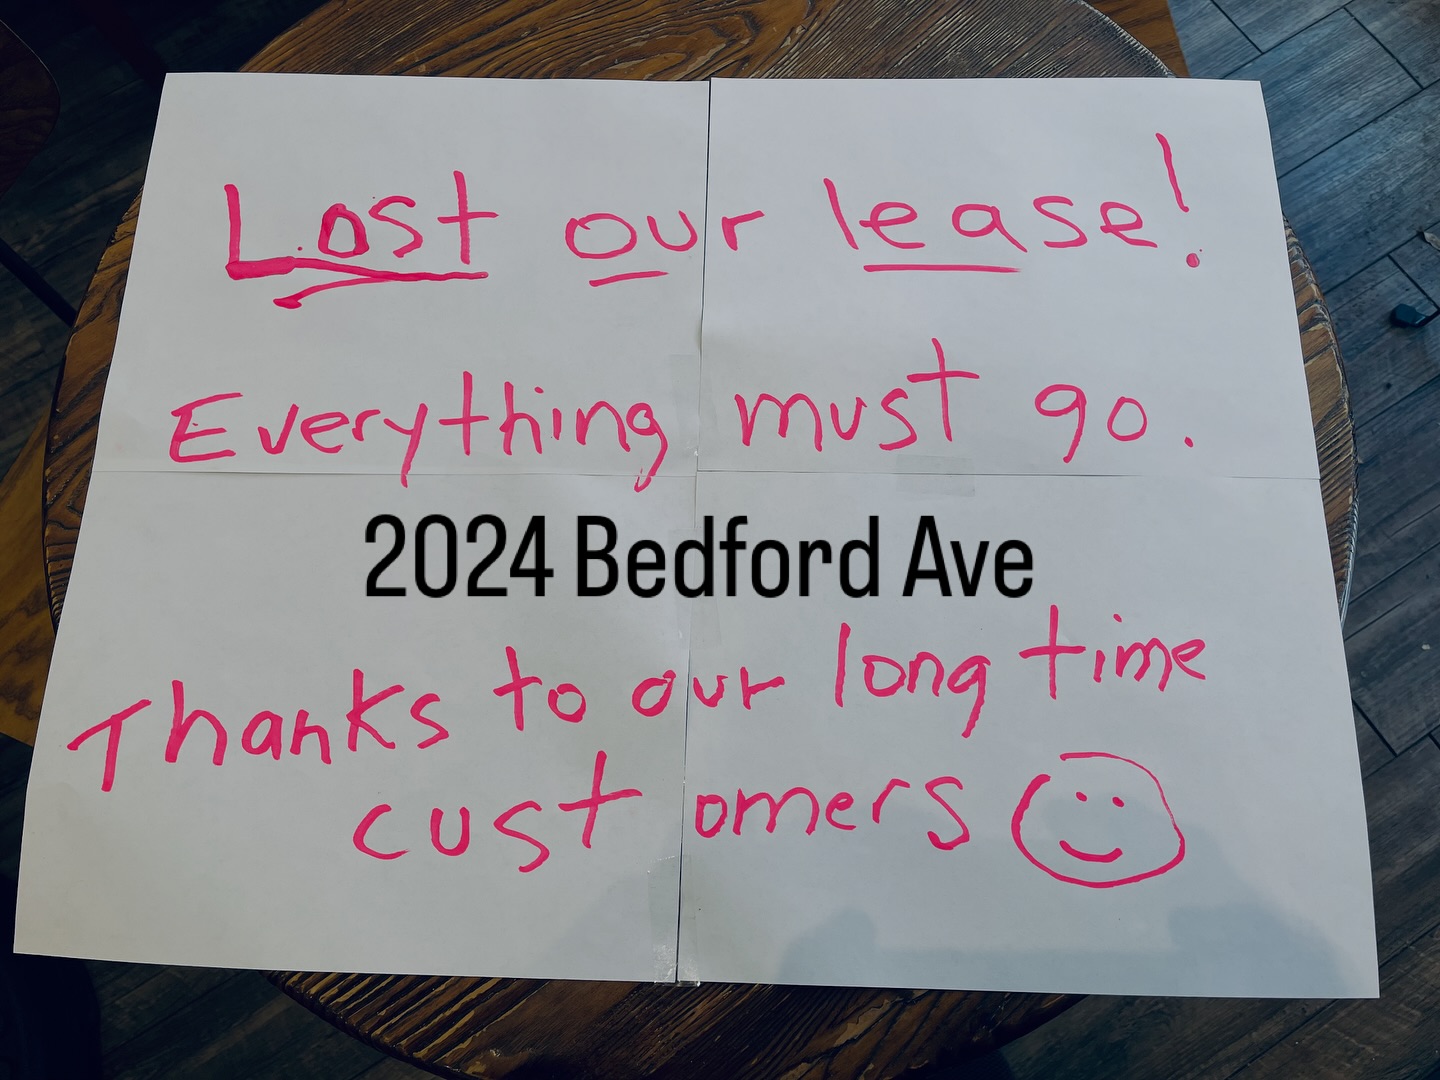 Lost our lease!
Everything must go.
2024 Bedford Ave
Thanks to our long time
customers